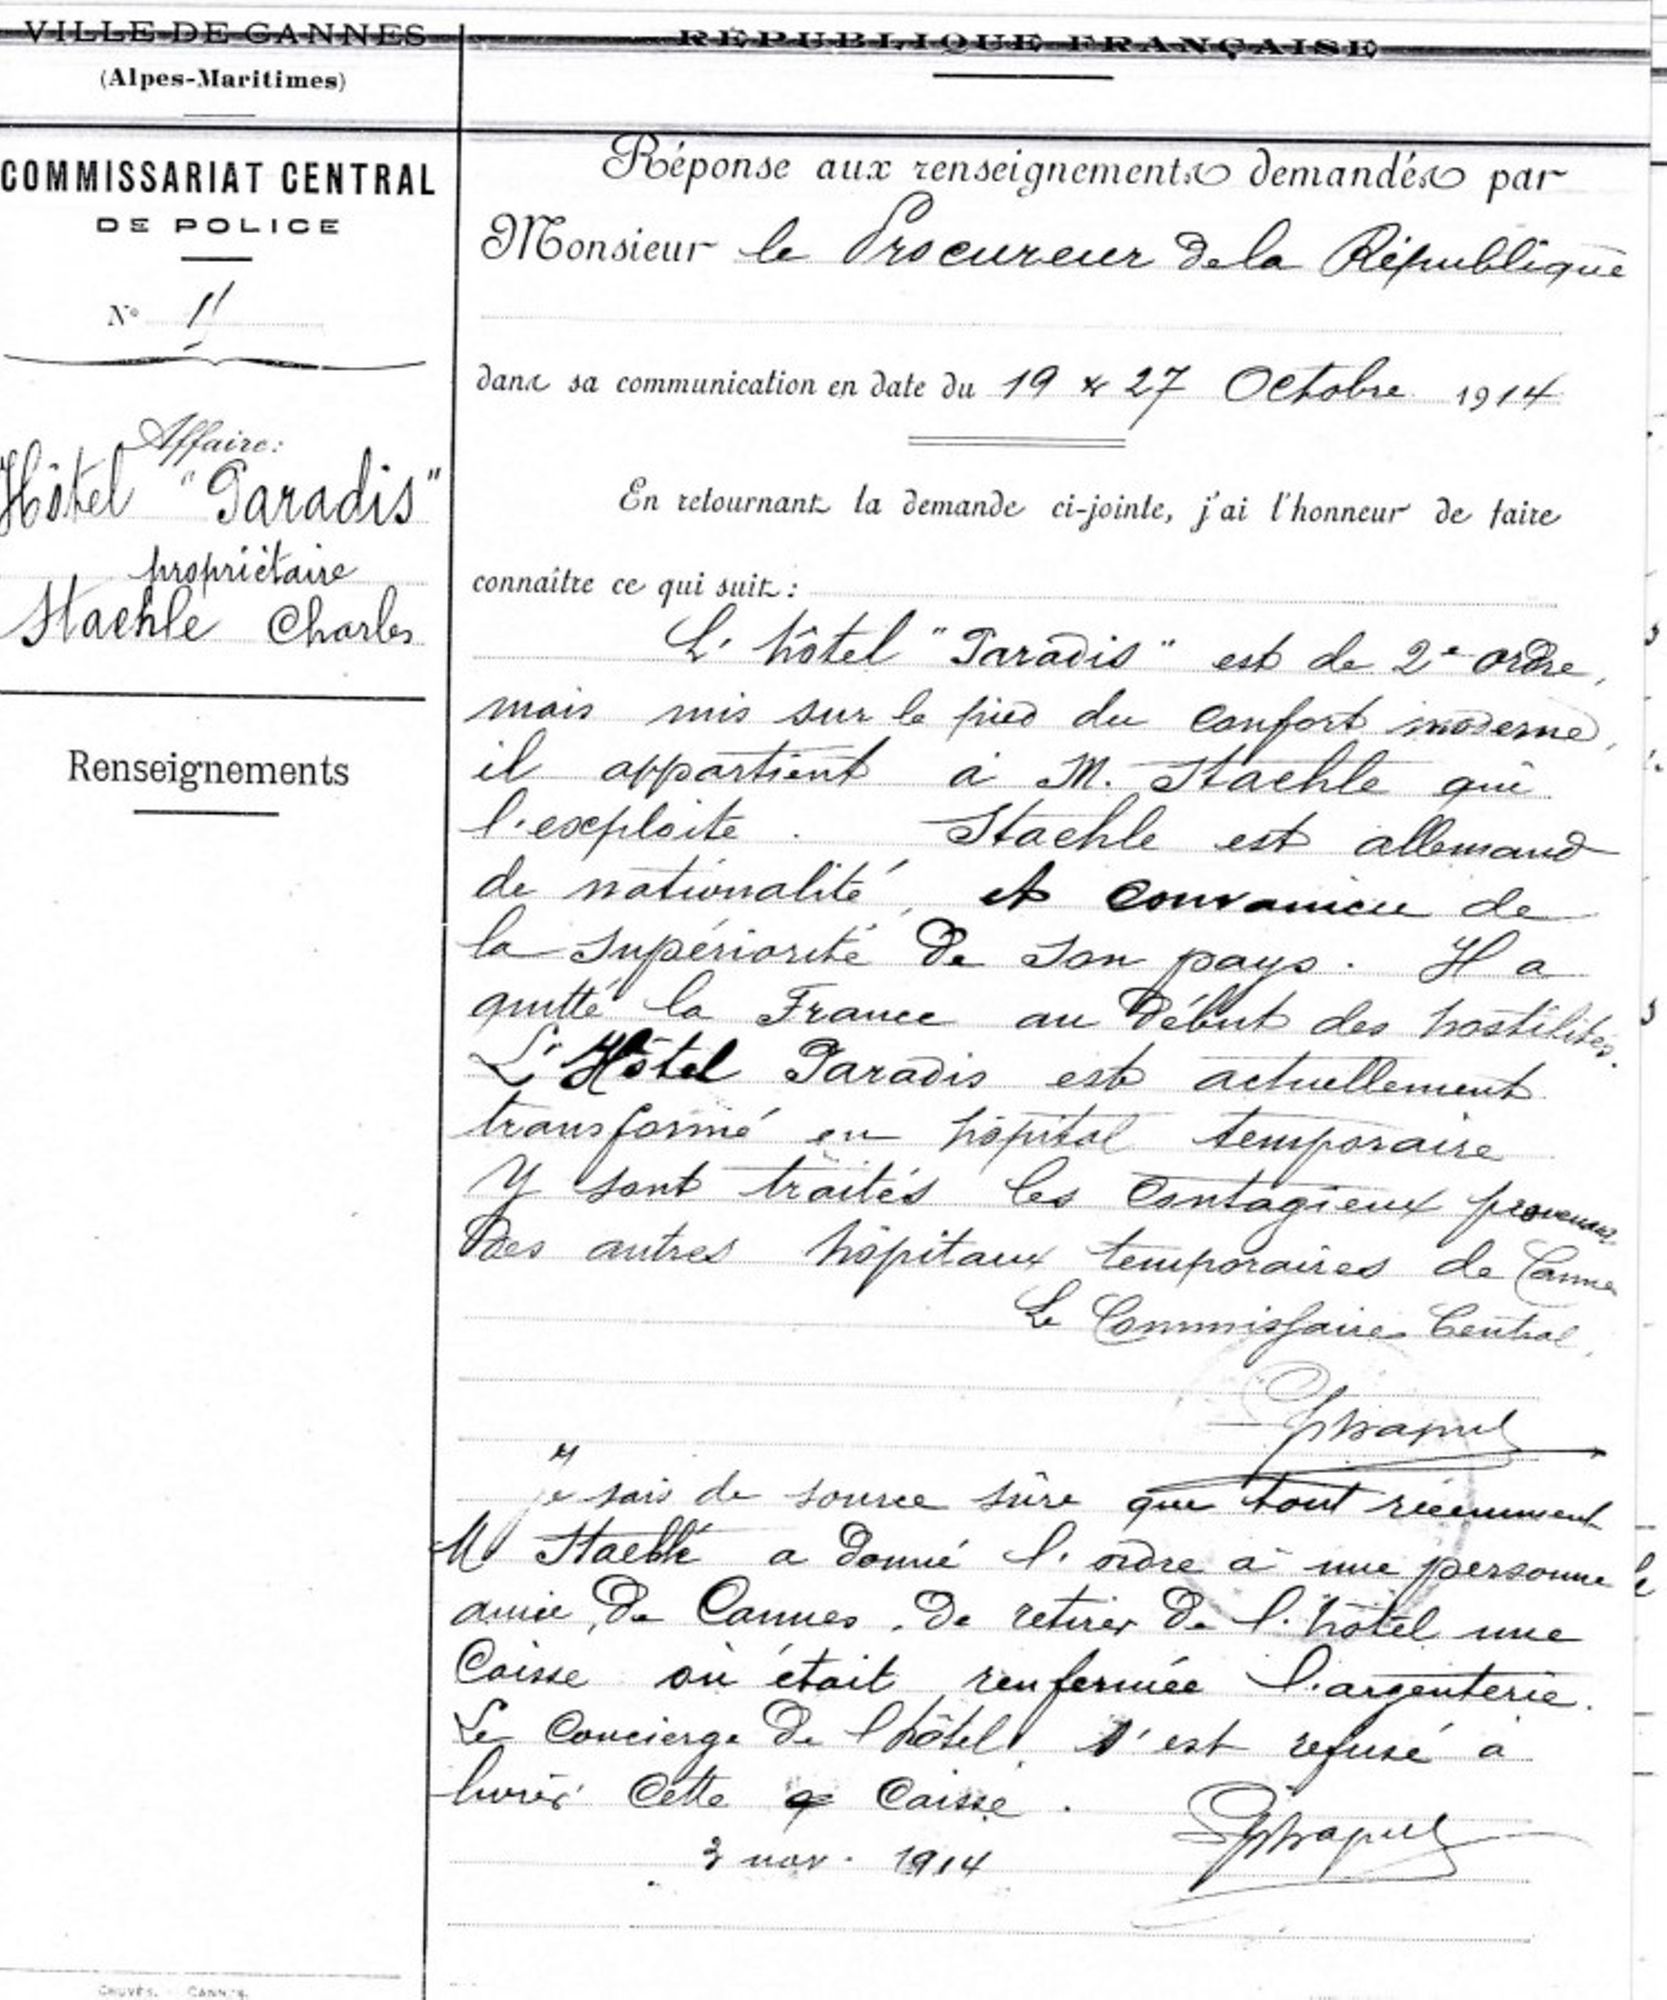 VILLE DE CANNES
(Alpes-Maritimes)
COMMISSARIAT CENTRAL
DE POLICE
N°
Affaire:
Hôtel "Paradis"
propriétaire
Staehle Charles
Renseignements
RÉPUBLIQUE FRANÇAISE
Réponse aux renseignements demandés par
Monsieur le Procureur de la République
dans sa communication en date du 19 & 27 Octobre 1914
En retournant la demande ci-jointe, j'ai l'honneur de faire
connaître ce qui suit :
L'hôtel "Paradis" est de 2e ordre,
mais mis sur le pied du confort moderne,
il appartient à M. Staehle qui
l'exploite. Staehle est allemand
de nationalité, et convaincu de
la supériorité de son pays. Il a
quitté la France au début des hostilités.
L'Hôtel Paradis est actuellement
transformé en hôpital temporaire
Y sont traités les contagieux provenant
des autres hôpitaux temporaires de Cannes
Le Commissaire Central,
Je sais de source sûre que tout récemment
M Staehle a donné l'ordre à une personne
amie, de Cannes, de retirer de l'hôtel une
Caisse où était renfermée l'argenterie.
Le Concierge de l'hôtel s'est refusé à
livrer cette caisse.
3 nov. 1914
CANNES.